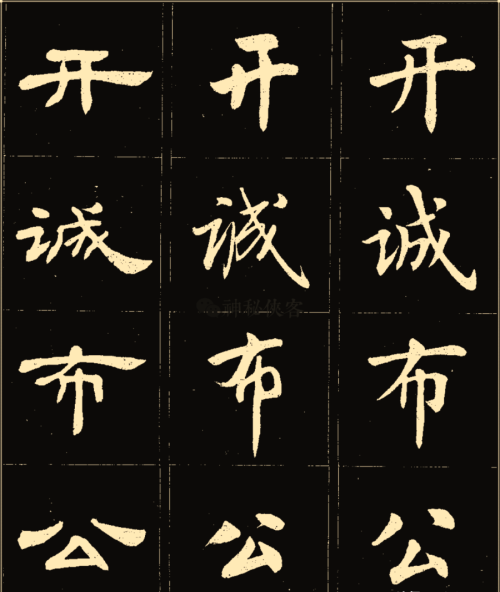 开开开
诚诚诚
神秘侠客
布布布
公公公